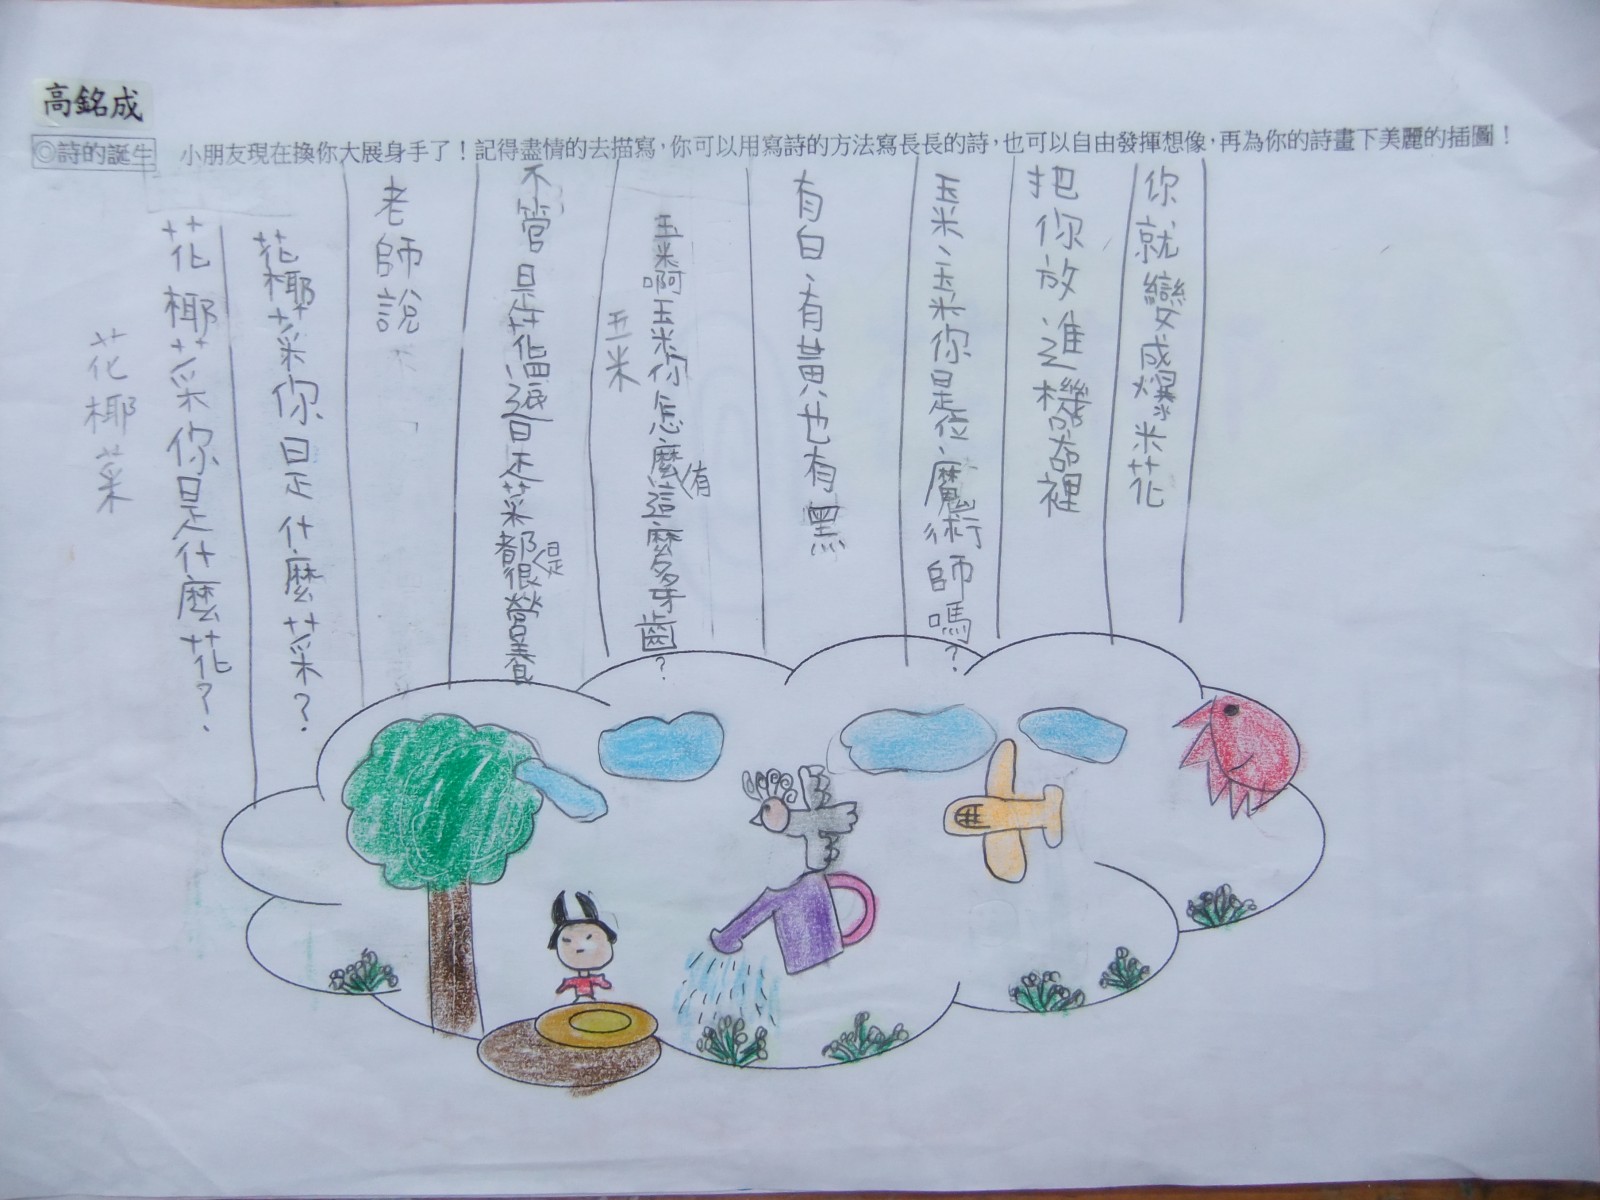 高銘成
◎詩的誕生 小朋友現在換你大展身手了！記得盡情的去描寫，你可以用寫詩的方法寫長長的詩，也可以自由發揮想像，再為你的詩畫下美麗的插圖！
花椰菜
花椰菜你是什麼花？
花椰菜你是什麼菜？
老師說
不管是花還是菜都是很營養
玉米
玉米啊玉米你怎麼有這麼多牙齒？
有白、有黃也有黑
玉米、玉米你是位魔術師嗎？
把你放進機器裡
你就變成爆米花